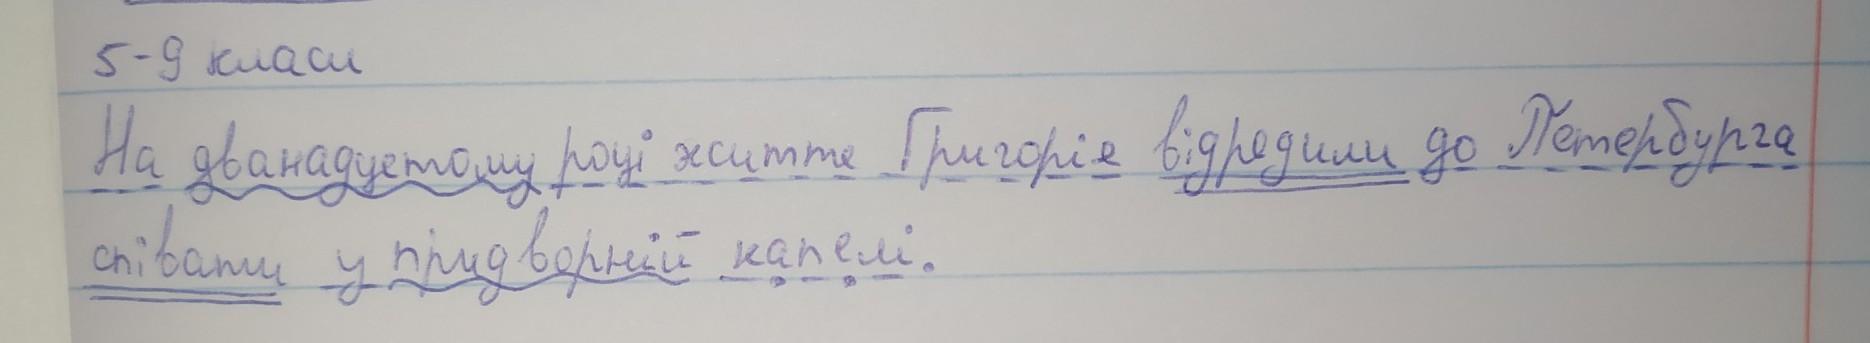 5-9 класи
На дванадцятому році життя Григорія відрядили до Петербурга
співати у придворній капелі.